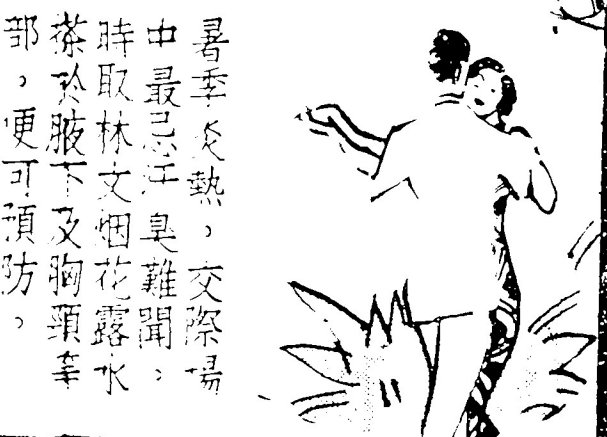 暑季炎熱，交際場
中最忌汗臭難聞，
時取林文烟花露水
搽於腋下及胸頸等
部，便可預防。